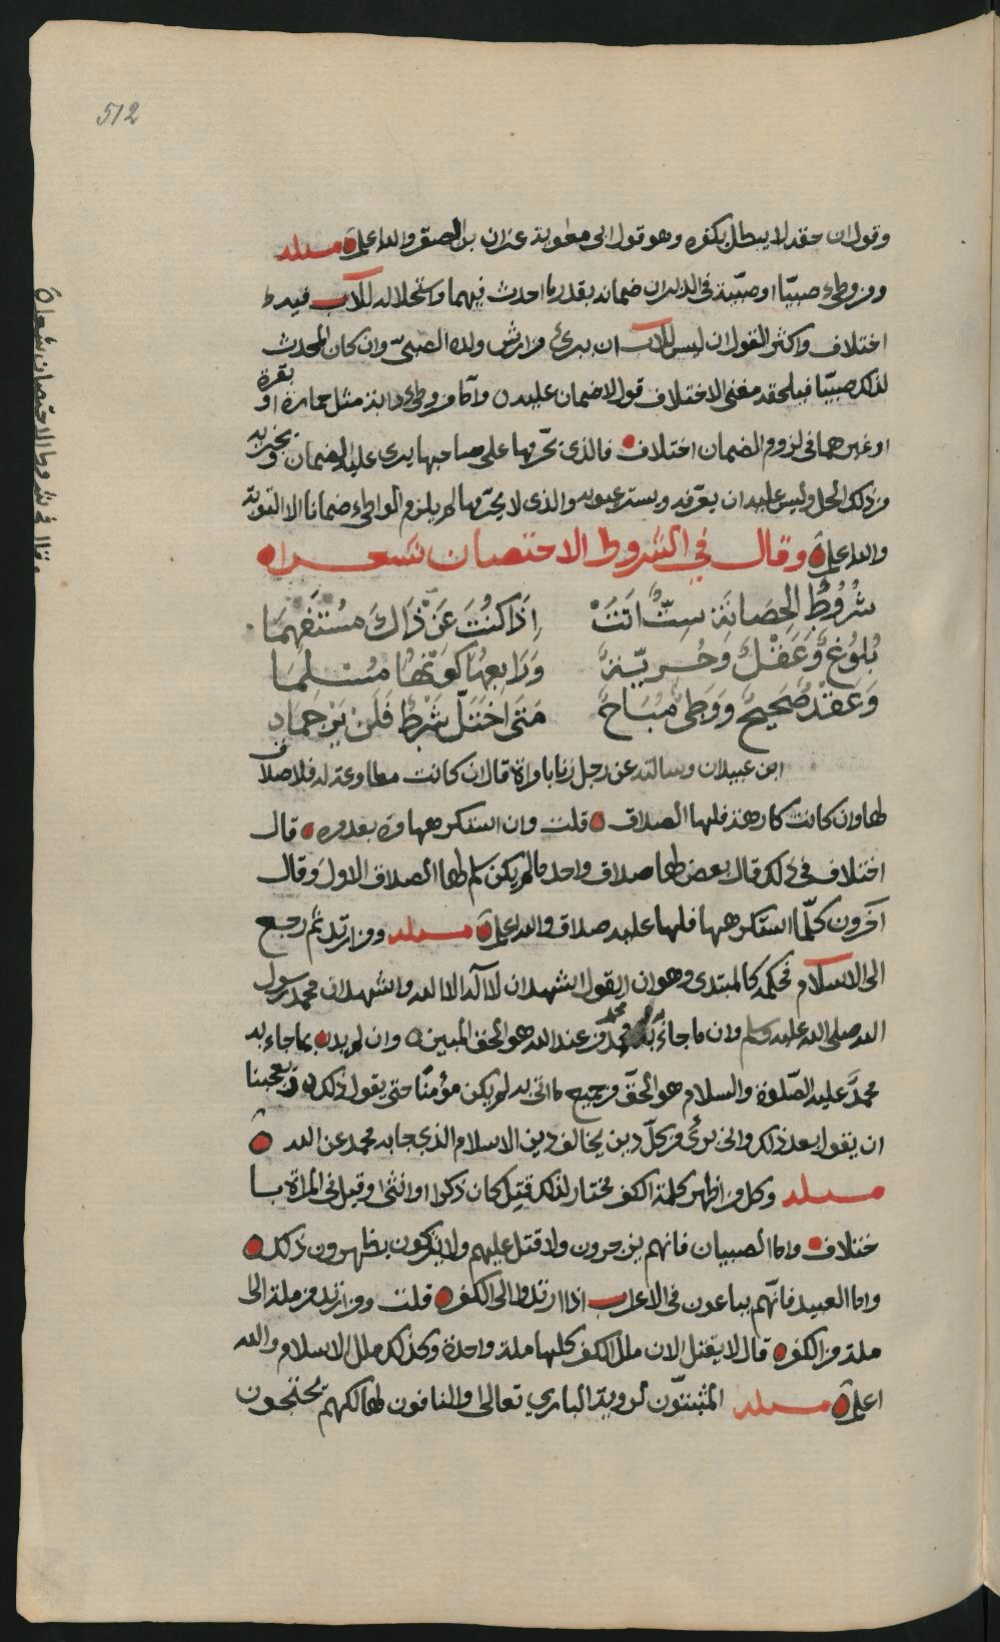 512
وقول ان حقه لا يبطل بكفره وهو قول ابي معاوية عزان بن الصقر والله اعلم مسئلة
ومن وطئ صبيّا او صبيّة في الدبر ان ضمانه بقدر ما احدث فيهما واستحلاله للاب فيه
اختلاف واكثر القول ان ليس للاب ان يبرئ من ارش ولده الصبيّ وان كان المحدث
لذلك صبيّا فيلحقه معنى الاختلاف قول لا ضمان عليه واما من وطئ دابة مثل حمارة او بقرة
او غيرهما في لزوم الضمان اختلاف فالذي يحرّمها على صاحبها يرى عليه الضمان ويخبر به
من ذلك الحل وليس عليه ان يعرّفه ويستر عيوبه والذي لا يحرّمها لم يلزم الواطئ ضمانا الا التوبة
والله اعلم وقال في الشروط الاحتصان شعرا
شُرُوطُ الحَصَانَة سِتٌّ اَتَتْ اِذَا كُنْتَ عَنْ ذَاكَ مُسْتَفْهِمَا
بُلُوغٌ وَعَقْلٌ وَحُرِيّةٌ وَرَابِعُهَا كَوْنُهَا مُسْلِمَا
وَعَقْدٌ صَحِيحٌ وَوَطئٌ مُبَاحٌ مَتَى اخْتَلّ شَرْطٌ فَلَنْ يُرْجَمَا
ابن عبيدان وسالته عن رجل زنا بامراة قال ان كانت مطاوعة له فلا صداق
لها وان كانت كارهة فلها الصداق قلت وان استكرهها مرة بعد مرة قال
اختلاف في ذلك قال بعض لها صداق واحد ما لم يكن سلم لها الصداق الاول وقال
آخرون كلّما استكرهها فلها عليه صداق والله اعلم مسئلة ومن ارتد ثم رجع
الى الاسلام فحكمه كالمبتدي وهو ان يقول اشهد ان لا اله الا الله واشهد ان محمد رسول
الله صلى الله عليه وسلم وان ما جاء به محمد من عند الله هو الحق المبين وان لم يدن بما جاء به
محمدٌ عليه الصّلوة والسلام هو الحقّ وجميع ما اتى به لم يكن مؤمنًا حتى يقول ذلك ويعجبنا
ان يقول بعد ذلك واني برئ من كلّ دين يخالف دين الاسلام الذي جا به محمد عن الله
مسئلة وكل من اظهر كلمة الكفر مختار لذلك قتل كان ذكرا او انثى وقيل في المراة با
ختلاف واما الصبيان فانهم يزجرون ولا قتل عليهم ولا يتركون يظهرون ذلك
واما العبيد فانّهم يباعون في الاعراب اذا ارتدوا الى الكفر قلت ومن ارتد من ملة الى
ملة من الكفر قال لا يقتل لان ملل الكفر كلها ملة واحدة وكذلك ملل الاسلام والله
اعلم مسئلة المثبتون لروية الباري تعالى والنافون لها كلهم محتجون
وقال في شروط الاحتصان شعرا